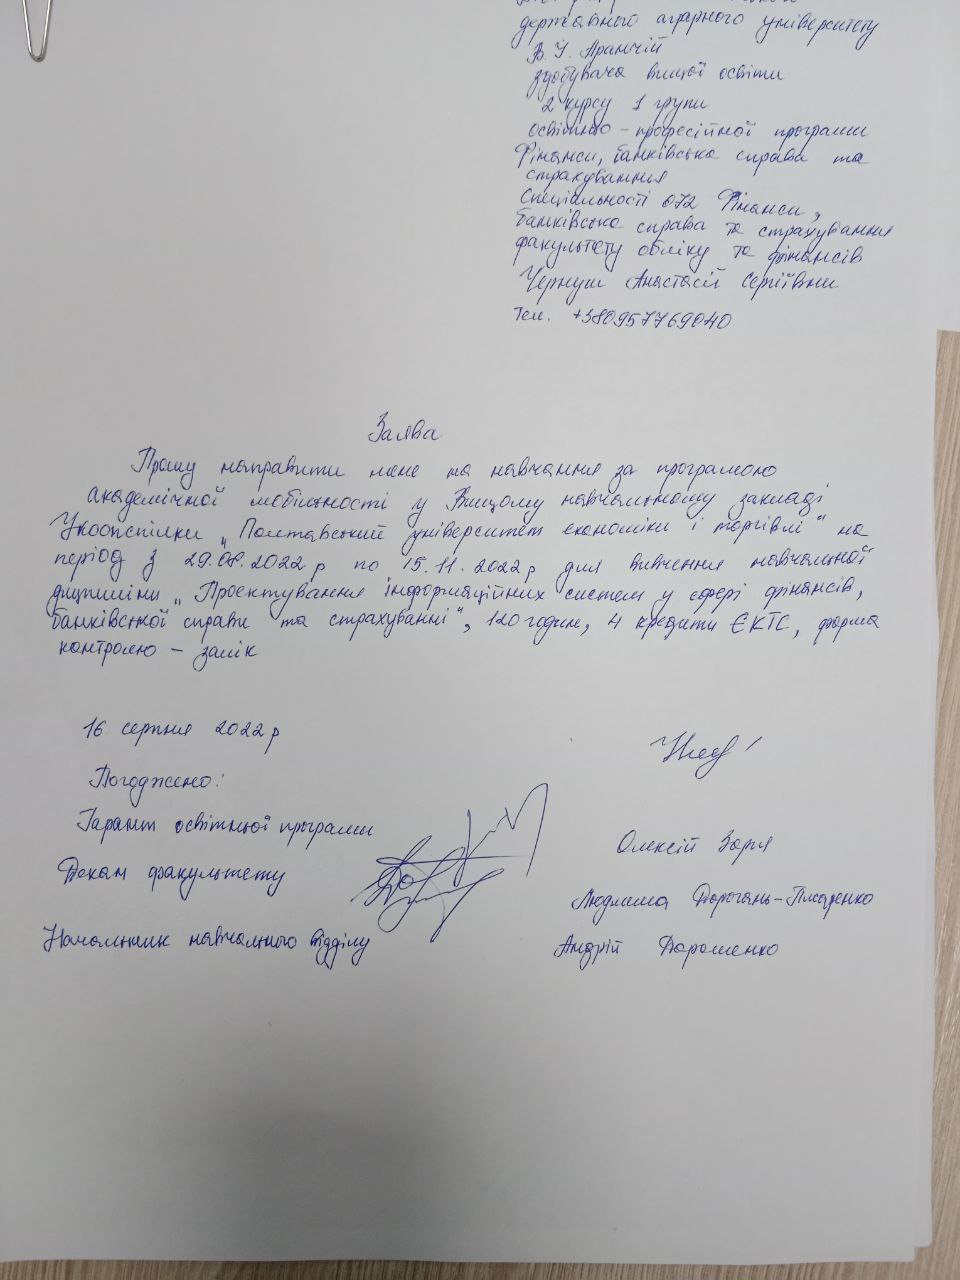 державного аграрного університету
В. І. Аранчій
здобувача вищої освіти
2 курсу 1 групи
освітньо - професійної програми
Фінанси, банківська справа та
страхування
Спеціальності 072 Фінанси,
банківська справа та страхування
факультету обліку та фінансів
Чернуш Анастасії Сергіївни
Тел. +380957769040
Заява
Прошу направити мене на навчання за програмою
академічної мобільності у Вищому навчальному закладі
Укоопспілки „Полтавський університет економіки і торгівлі" на
період з 29.08.2022 р по 15.11.2022 р для вивчення навчальної
дисципліни „Проєктування інформаційних систем у сфері фінансів,
банківської справи та страхуванні", 120 годин, 4 кредити ЄКТС, форма
контролю – залік
16. серпня 2022 р
Погоджено:
Гарант освітньої програми Олексій Зоря
Декан факультету Людмила Дорогань-Писаренко
Начальник навчального відділу Андрій Дорошенко